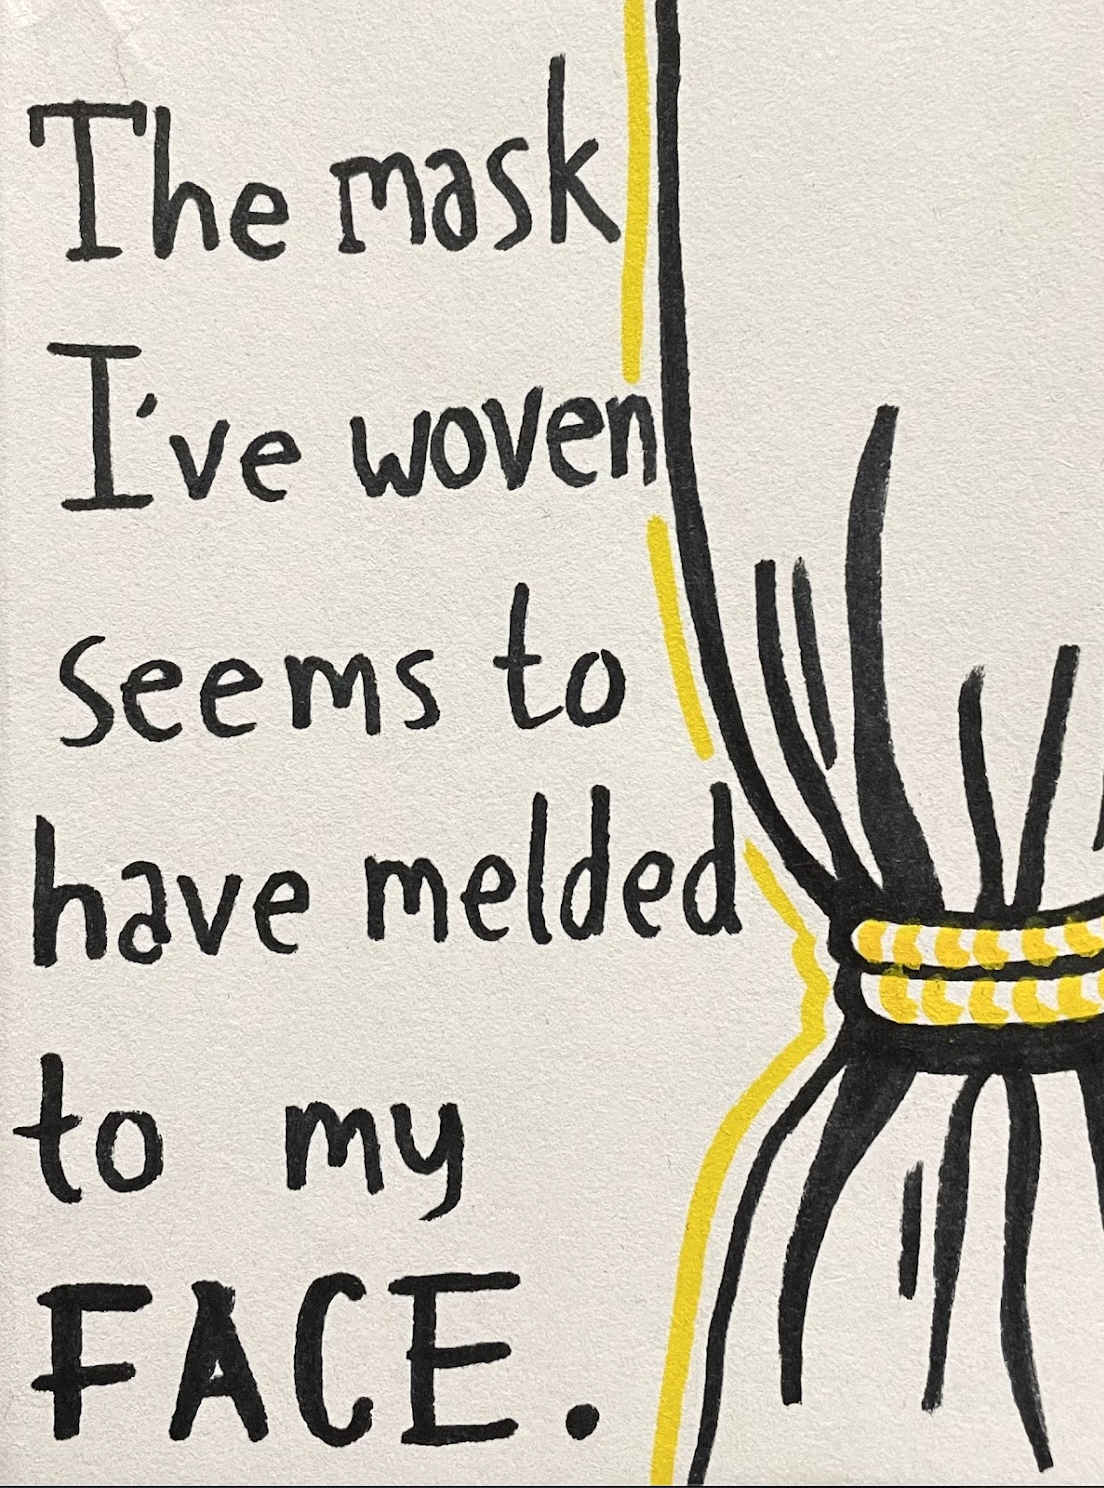 The mask
I've woven
seems to
have melded
to my
FACE.